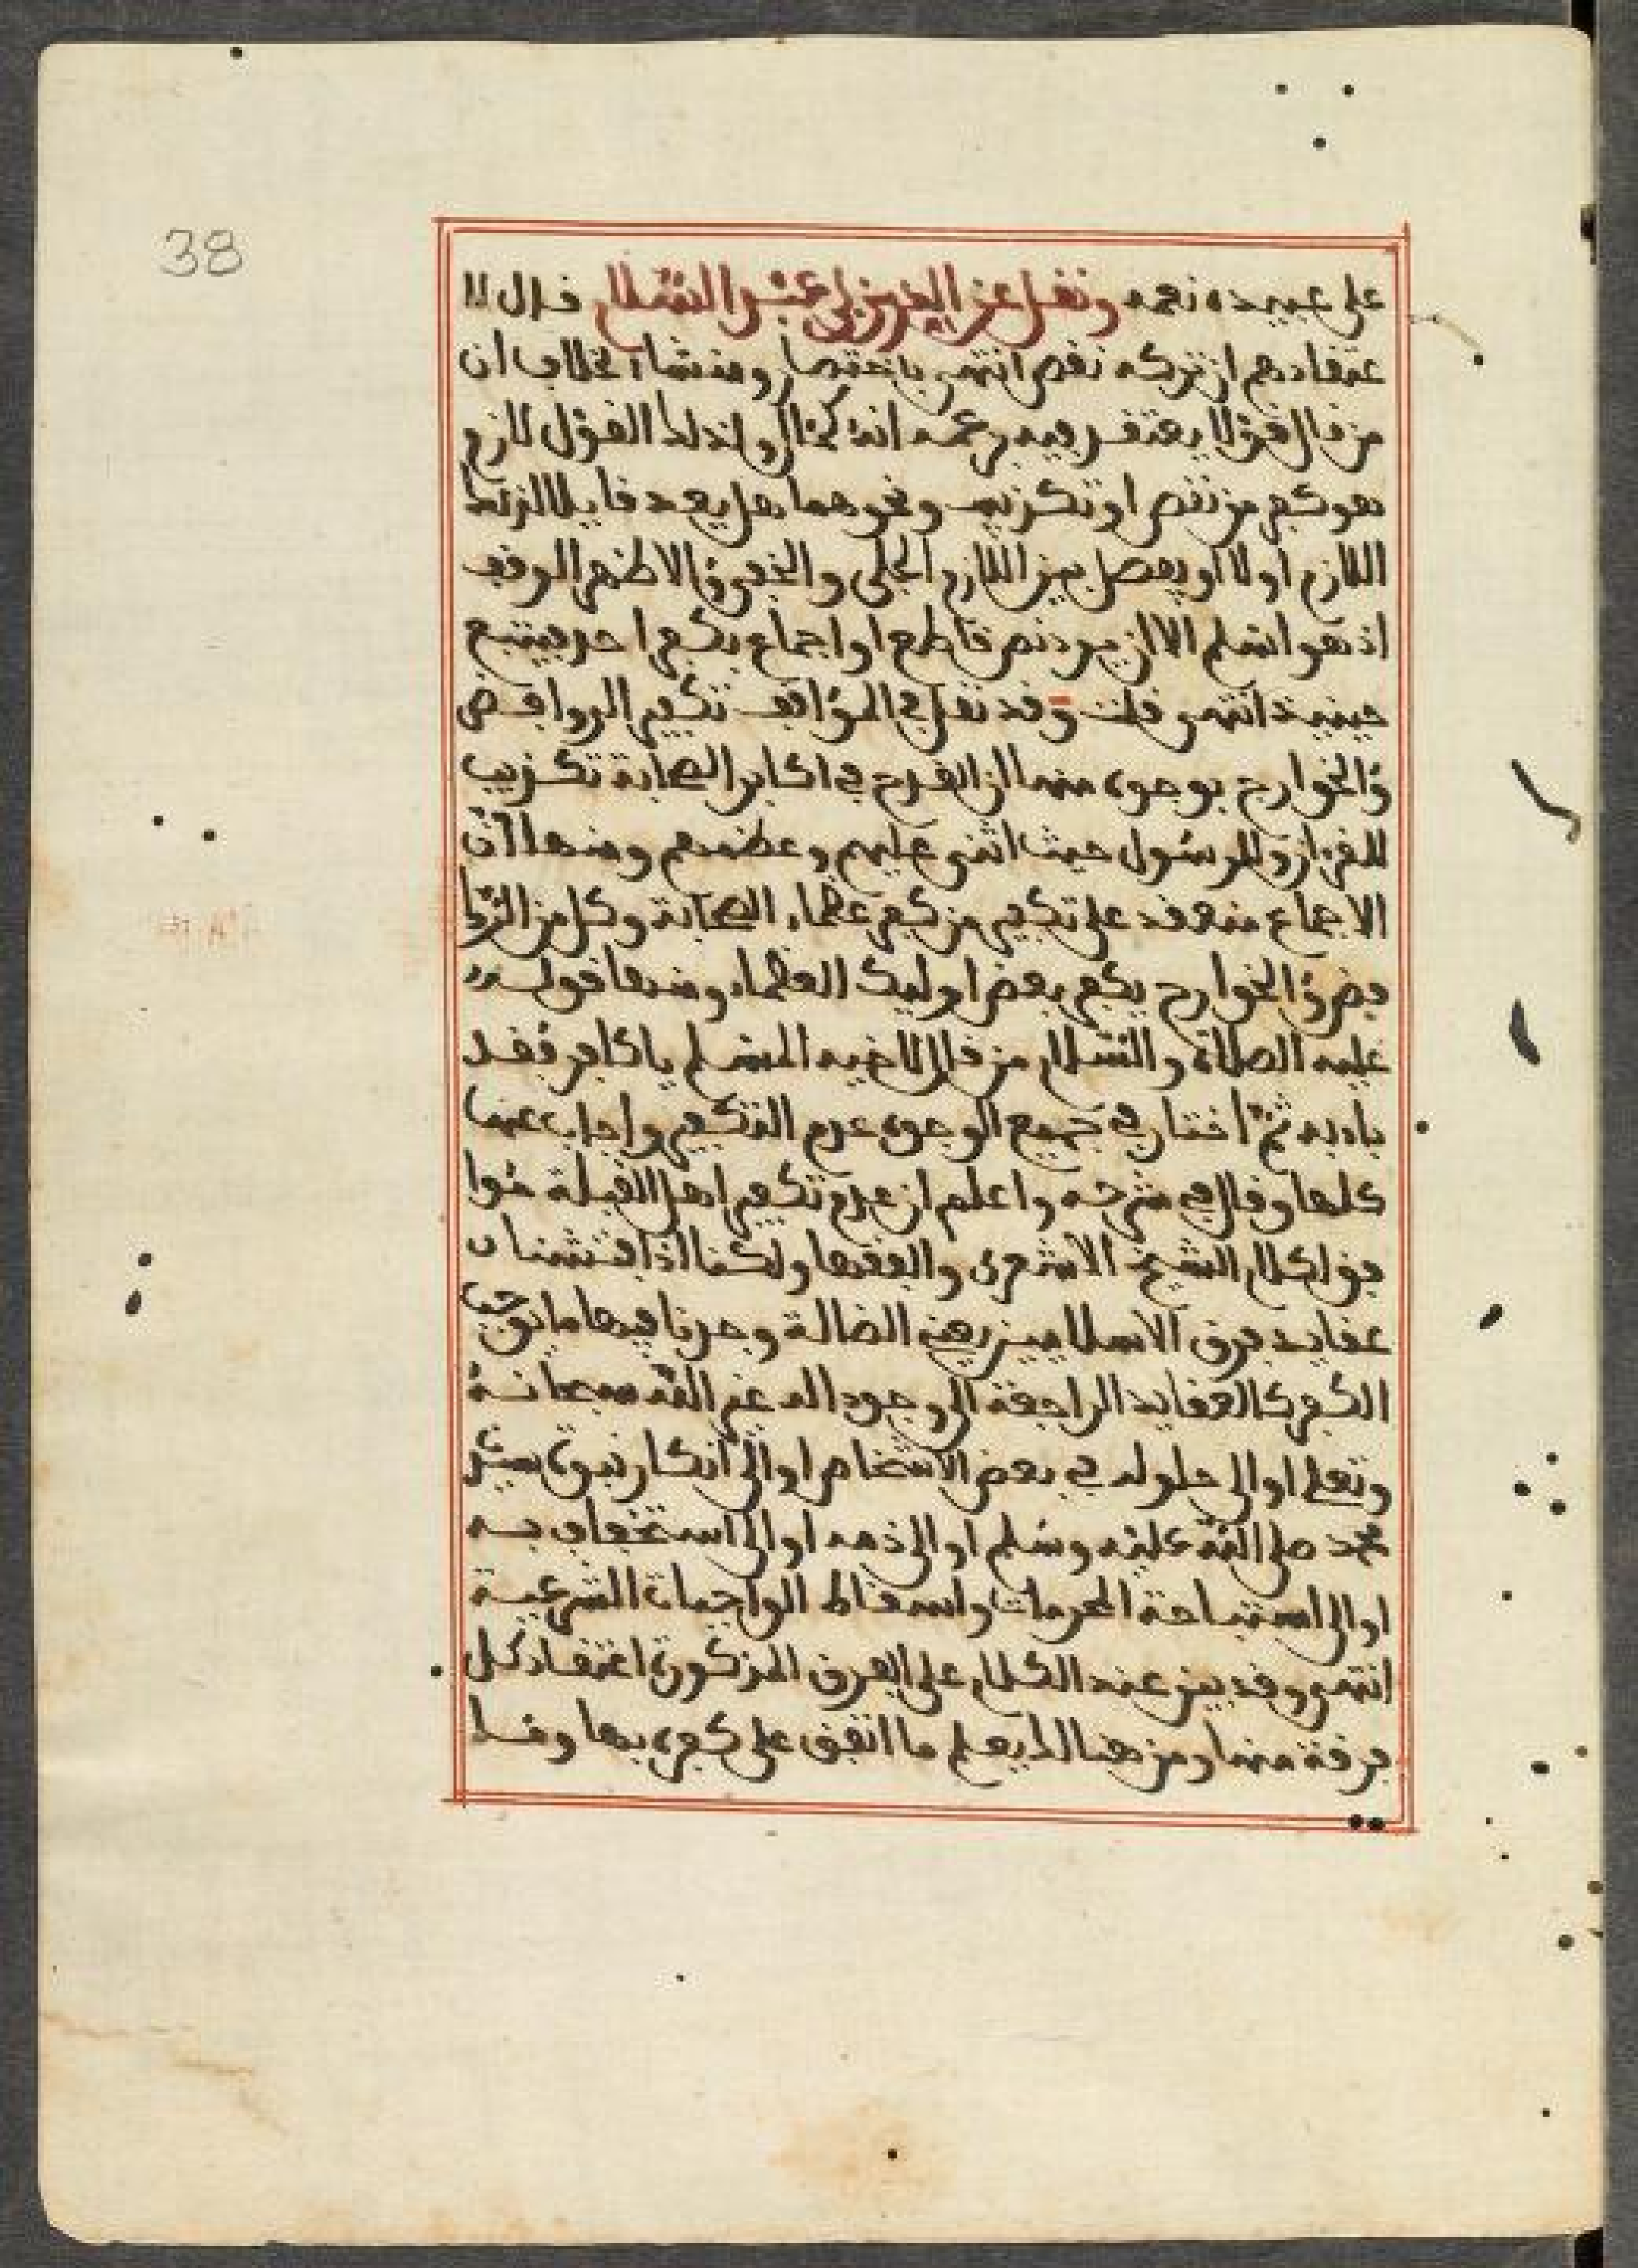 38
على عبيده نعمه ونقل عز الدين بن عبد السلام قال لا
عتقادهم ان تركه نقص انتهى باختصار ومنشا الخلاف ان
من قال قولا يعتقد فيه بزعمه انه كمال ولذلك القول لازم
هو كفر من نقص او تكذيب ونحوهما هل يعد قايلا لذلك
اللازم اولا او يفصل بين اللازم الجلي والخفي والاظهر الوقف
اذ هو اسلم الا ان يرد نص قاطع او اجماع بكفر احد فيتبع
حينيذ انتهى قلت وقد نقل في المواقف تكفير الروافض
والخوارج بوجوه منها ان القدح في اكابر الصحابة تكذيب
للقرءان وللرسول حيث اثنى عليهم وعظمهم ومنها ان
الاجماع منعقد على تكفير من كفر عظماء الصحابة وكل من الروا
فض والخوارج يكفر بعض اوليك العظماء ومنها قوله
عليه الصلاة والسلام من قال لاخيه المسلم يا كافر فقد
باء به ثم اختار في جميع الوجوه عدم التكفير واجاب عنها
كلها وقال في شرحه واعلم ان عدم تكفير اهل القبلة موا
فق لكلام الشيخ الاشعري والفقها ولكنا اذا فتشنا
عقايد فرق الاسلاميين بهذه الضالة وجدنا فيها ما يوجب
الكفر كالعقايد الراجعة الى وجود اله غير الله سبحانه
وتعلى او الى حلوله في بعض الاشخاص او الى انكار نبوة سيدنا
محمد صلى الله عليه وسلم او الى ذمه او الى استخفاف به
او الى استباحة المحرمات واسقاط الواجبات الشرعية
انتهى وقد بين عند الكلام على الفرق المذكورة اعتقاد كل
فرقة منها ومن هنالك يعلم ما اتفق على كفره بها وما